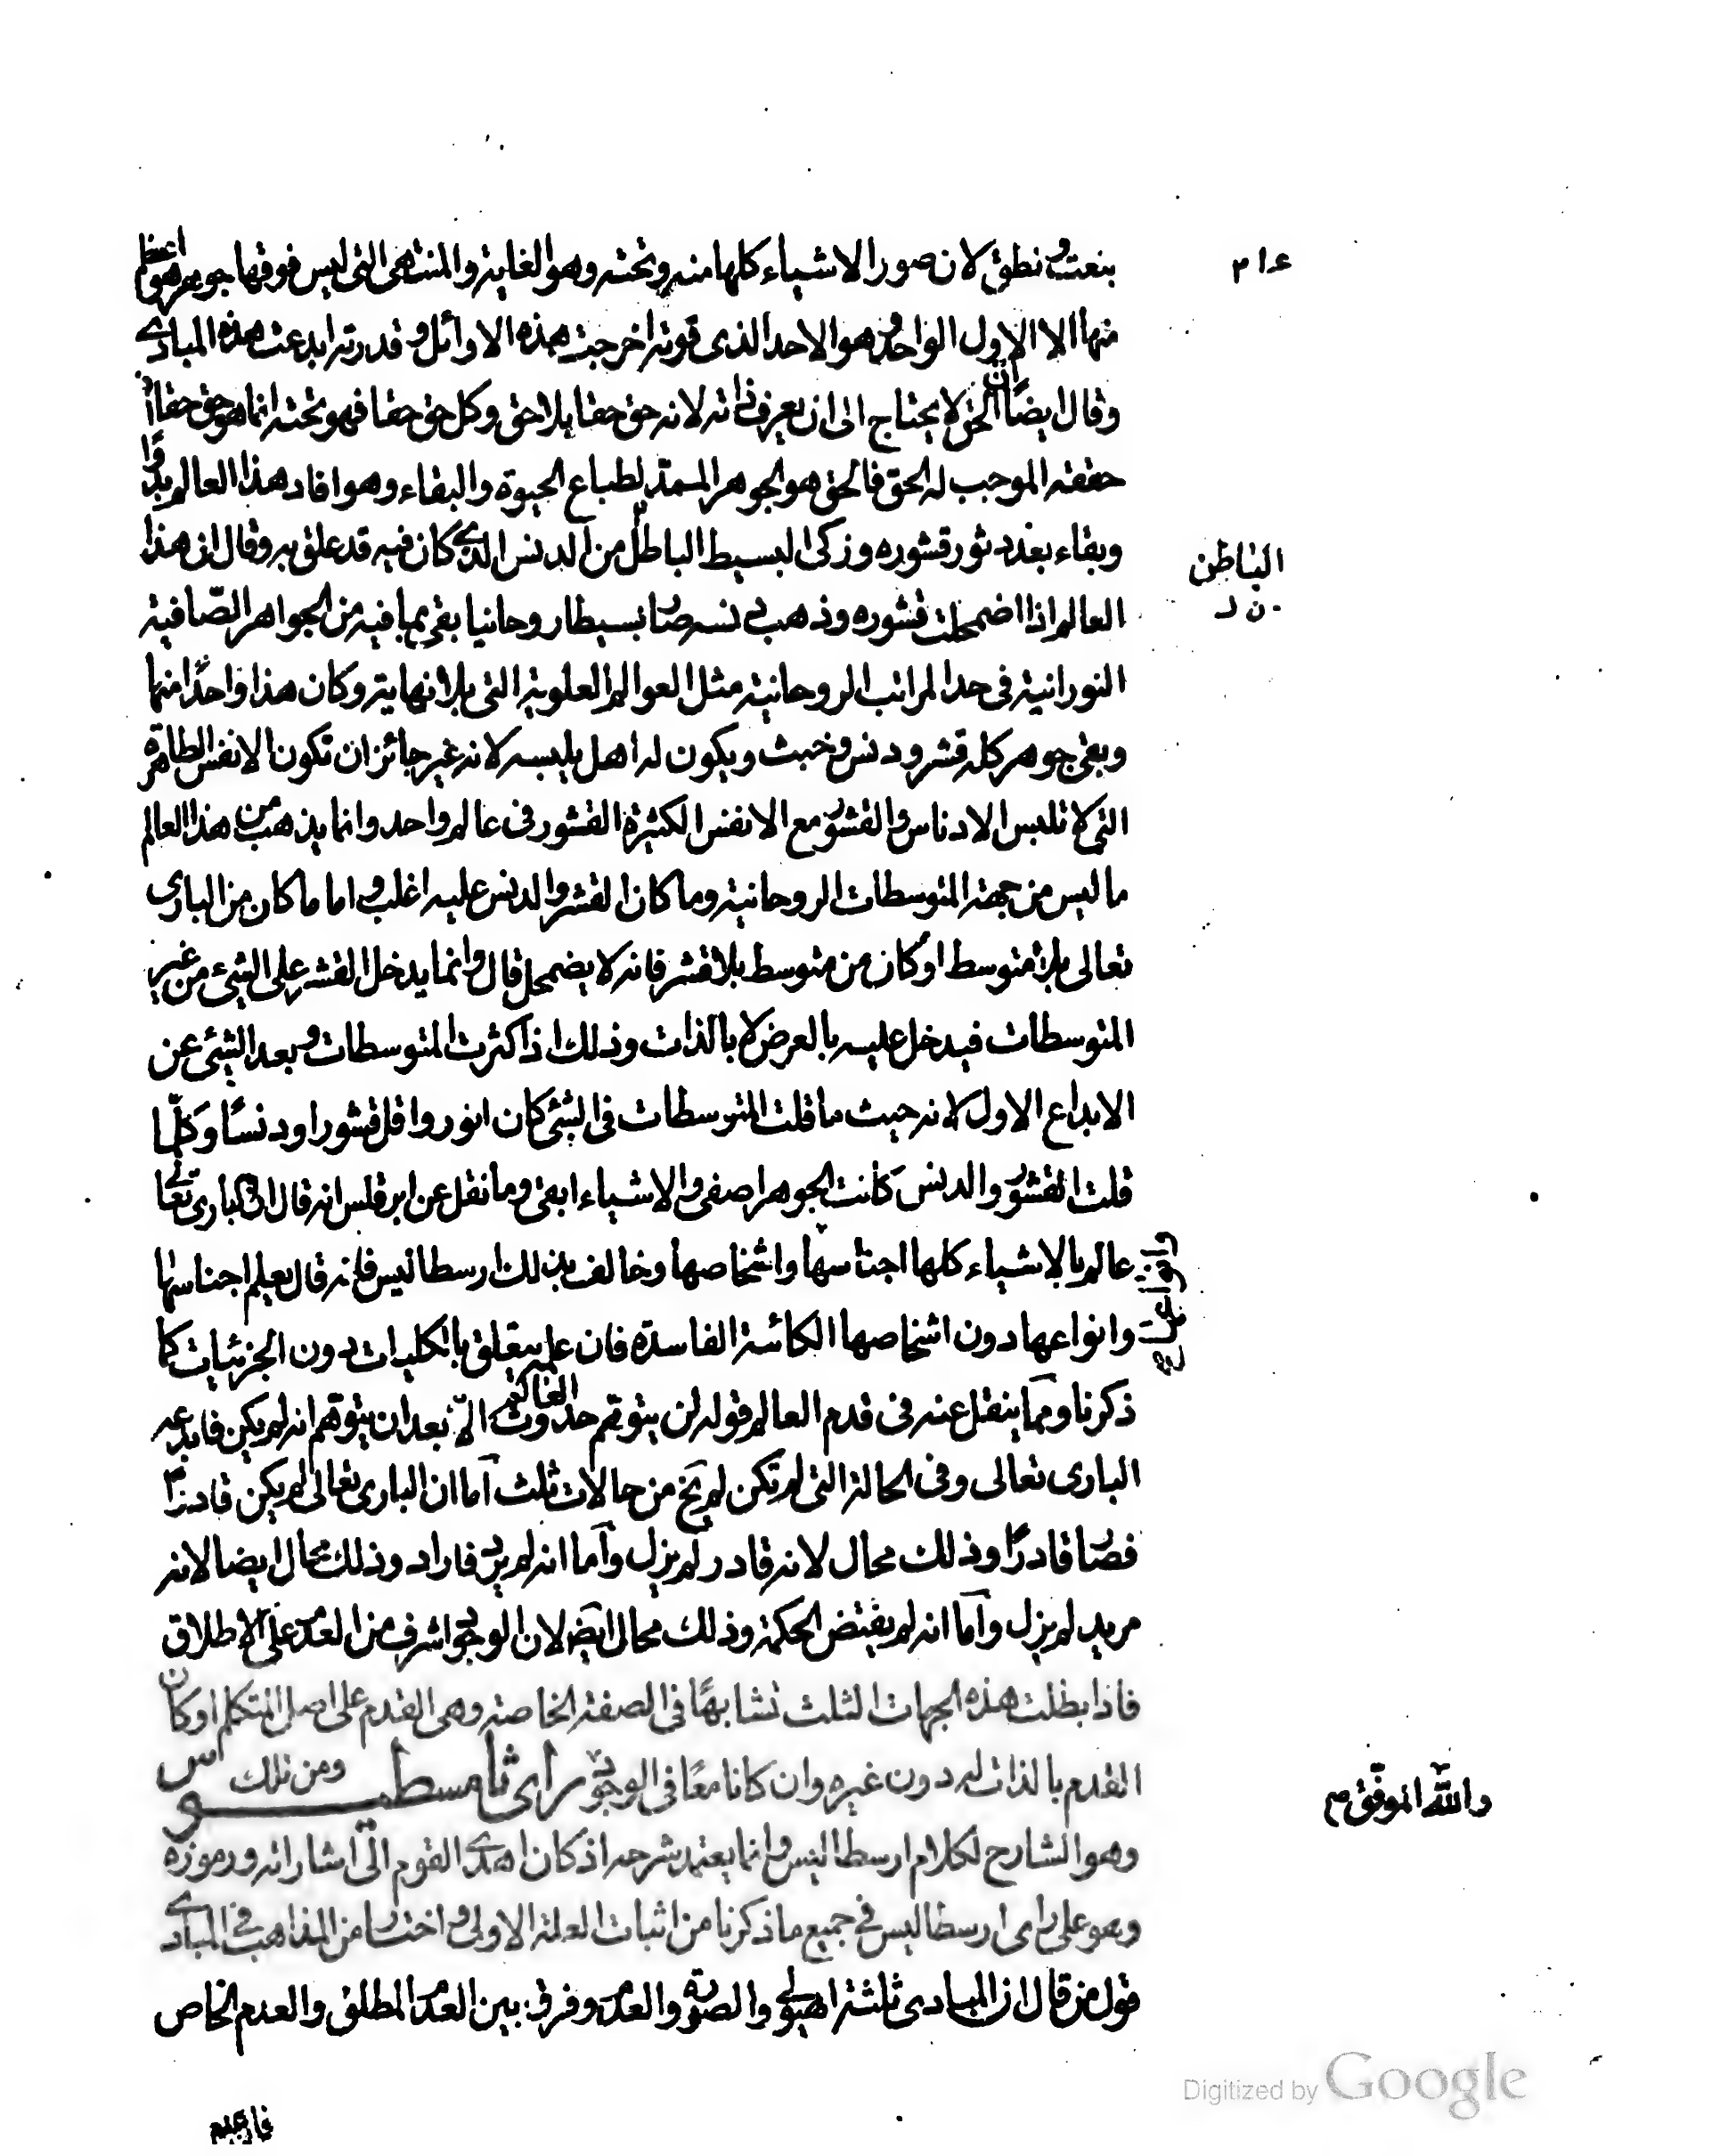 بنعت ونطق لان صور الاشياء كلها منه وتحته وهو الغاية والمنتهى التى ليس فوقها جوهر هو اعظم
منها الا الاول الواحد وهو الاحد الذى قوته اخرجت هذه الاوائل وقدرته ابدعت هذه المبادى
وقال ايضا ان الحق لا يحتاج الى ان يعرف ذاته لانه حق حقا بلا حق وكل حق حقا فهو تحته انما هو حق حقا اذ
حققه الموجب له الحق فالحق هو الجوهر الممد لطباع الحيوة والبقاء وهو افاد هذا العالم بدوا
وبقاء بعد دثور قشوره وزكى البسيط الباطل من الدنس الذى كان فيه قد علق به وقال ان هذا
العالم اذا اضمحلت قشوره وذهب دنسه صار بسيطا روحانيا بقى بما فيه من الجواهر الصّافية
النورانية فى حد المراتب الروحانية مثل العوالم العلوية التى بلا نهاية وكان هذا واحدًا منها
وبقى جوهر كله قشر ودنس وخبث ويكون له اهل يلبسه لانه غير جائز ان تكون الانفس الطاهرة
التى لا تلبس الادناس والقشور مع الانفس الكثيرة القشور فى عالم واحد وانما يذهب من هذا العالم
ما ليس من جهة المتوسطات الروحانية وما كان القشر والدنس عليه اغلب واما ما كان من البارى
تعالى بلا متوسط او كان من متوسط بلا قشر فانه لا يضمحل قال وانما يدخل القشر على الشئ من غير
المتوسطات فيدخل عليه بالعرض لا بالذات وذلك اذا كثرت المتوسطات وبعد الشئ عن
الابداع الاول لانه حيث ما قلت المتوسطات فى الشئ كان انور واقل قشورا ودنسًا وكلّما
قلت القشور والدنس كانت الجواهر اصفى والاشياء ابقى وما نقل عن ابرقلس انه قال ان البارى تعالى
عالم بالاشياء كلها اجناسها واشخاصها وخالف بذلك ارسطاليس فانه قال يعلم اجناسها
وانواعها دون اشخاصها الكائنة الفاسدة فان علمه يتعلق بالكليات دون الجزئيات كما
ذكرنا ومما ينقل عنه فى قدم العالم قوله لن يتوهم حدوث العالم الّا بعد ان يتوهم انه لم يكن فابدعه
البارى تعالى وفى الحالة التى لم تكن لم يخ من حالات ثلث اما ان البارى تعالى لم يكن قادرًا
فصار قادرًا وذلك محال لانه قادر لم يزل واما انه لم يرد فاراد وذلك محال ايضا لانه
مريد لم يزل واما انه لم يقتض الحكمة وذلك محال ايضا لان الوجود اشرف من العدم على الاطلاق
فاذا بطلت هذه الجهات الثلث تشابها فى الصفة الخاصة وهى القدم على اصل المتكلم او كان
القدم بالذات له دون غيره وان كانا معًا فى الوجود راى ثامسطيوس ومن ذلك
وهو الشارح لكلام ارسطاليس وانما يعتمد شرحه اذ كان اهدى القوم الى اشاراته ورموزه
وهو على راى ارسطاليس فى جميع ما ذكرنا من اثبات العلة الاولى واختار من المذاهب فى المبادى
قول من قال ان المبادى ثلثة الهيولى والصورة والعدم وفرق بين العدم المطلق والعدم الخاص
الباطن
ن ل
والله الموفق م
فان عدم
Digitized by Google